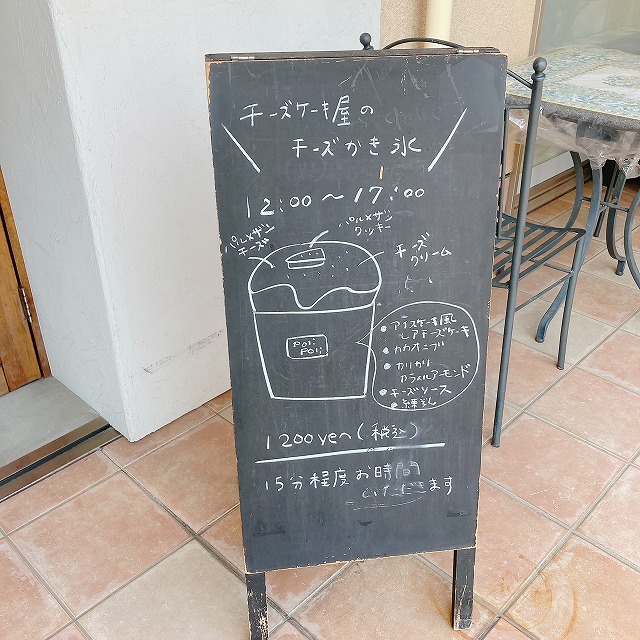 チーズケーキ屋の
チーズかき氷
12:00～17:00
パルメザン
チーズ
パルメザン
クッキー
チーズ
クリーム
POLi
POLi
●アイスケーキ風
レアチーズケーキ
●カカオニブ
●カリカリ
カラメルアーモンド
●チーズソース
●練乳
1200yen(税込)
15分程度お時間
いただきます